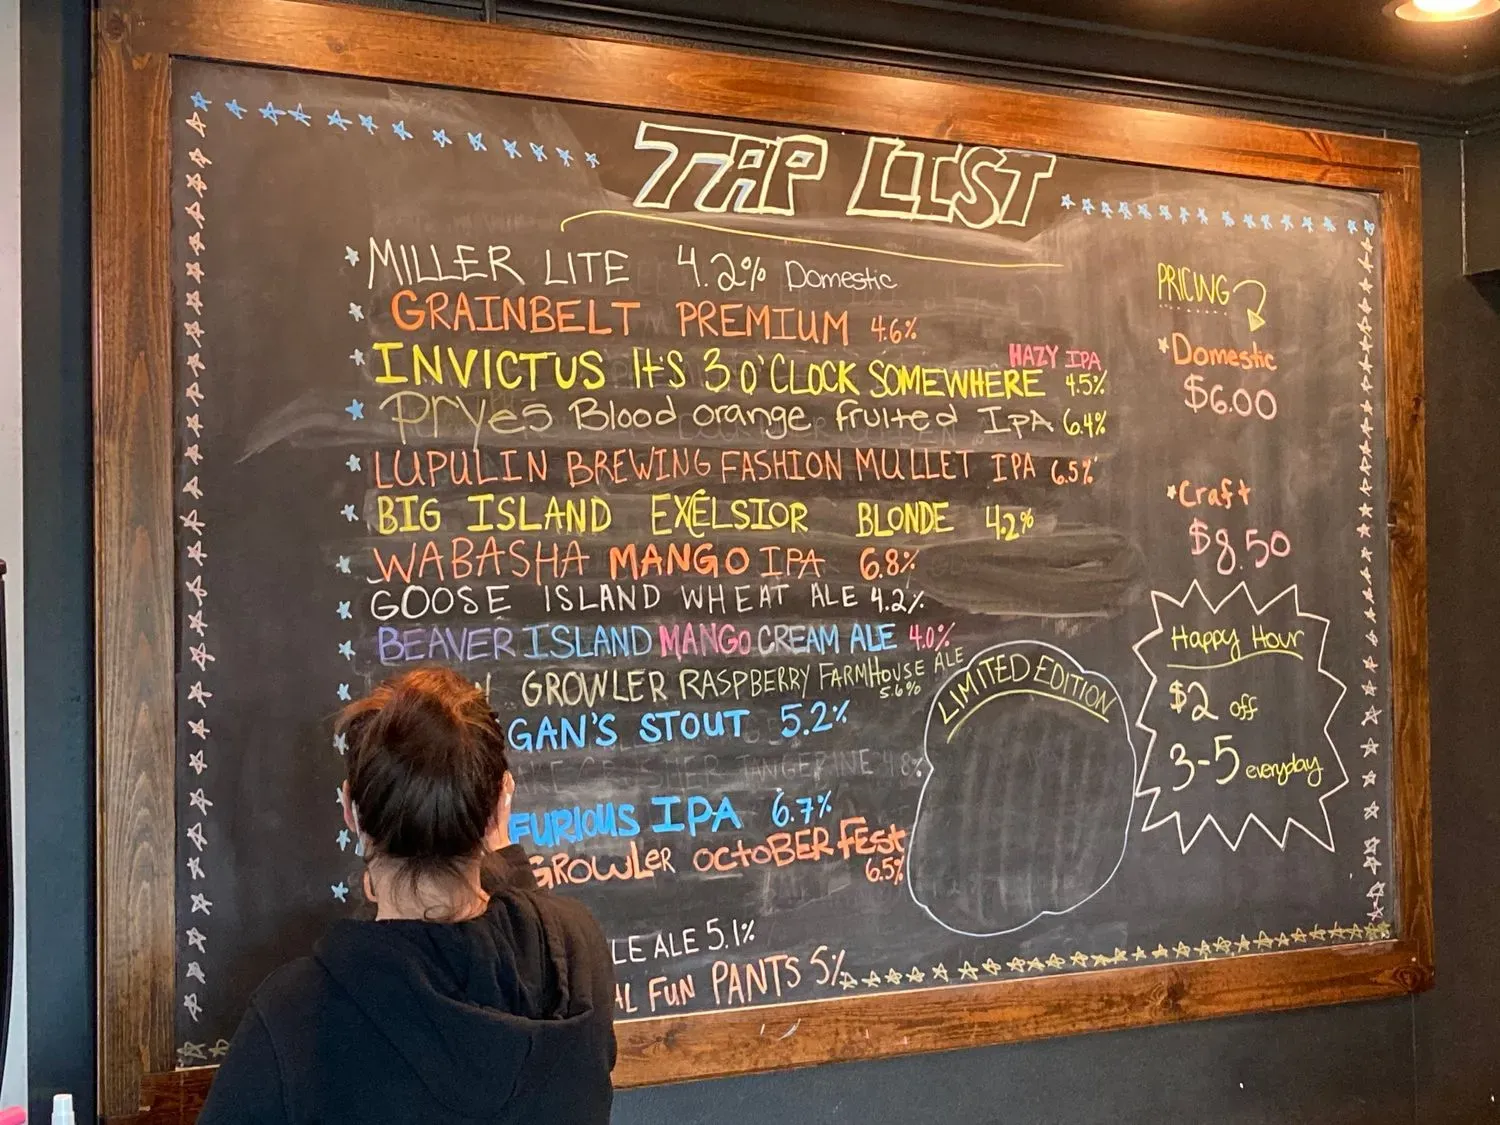 TAP LIST
MILLER LITE 4.2% Domestic
GRAINBELT PREMIUM 4.6%
HAZY IPA
INVICTUS It'S 3 O'CLOCK SOMEWHERE 4.5%
Pryes Blood orange fruited IPA 6.4%
LUPULIN BREWING FASHION MULLET IPA 6.5%
BIG ISLAND EXCELSIOR BLONDE 4.2%
WABASHA MANGO IPA 6.8%
GOOSE ISLAND WHEAT ALE 4.2%
BEAVER ISLAND MANGO CREAM ALE 4.0%
GROWLER RASPBERRY FARMHOUSE ALE
5.6%
GAN'S STOUT 5.2%
TANGERINE 4.8%
FURIOUS IPA 6.7%
GROWLER OCTOBERFEST
6.5%
LE ALE 5.1%
AL FUN PANTS 5%
PRICING
*Domestic
$6.00
*Craft
$8.50
Happy Hour
$2 off
3-5 everyday
LIMITED EDITION